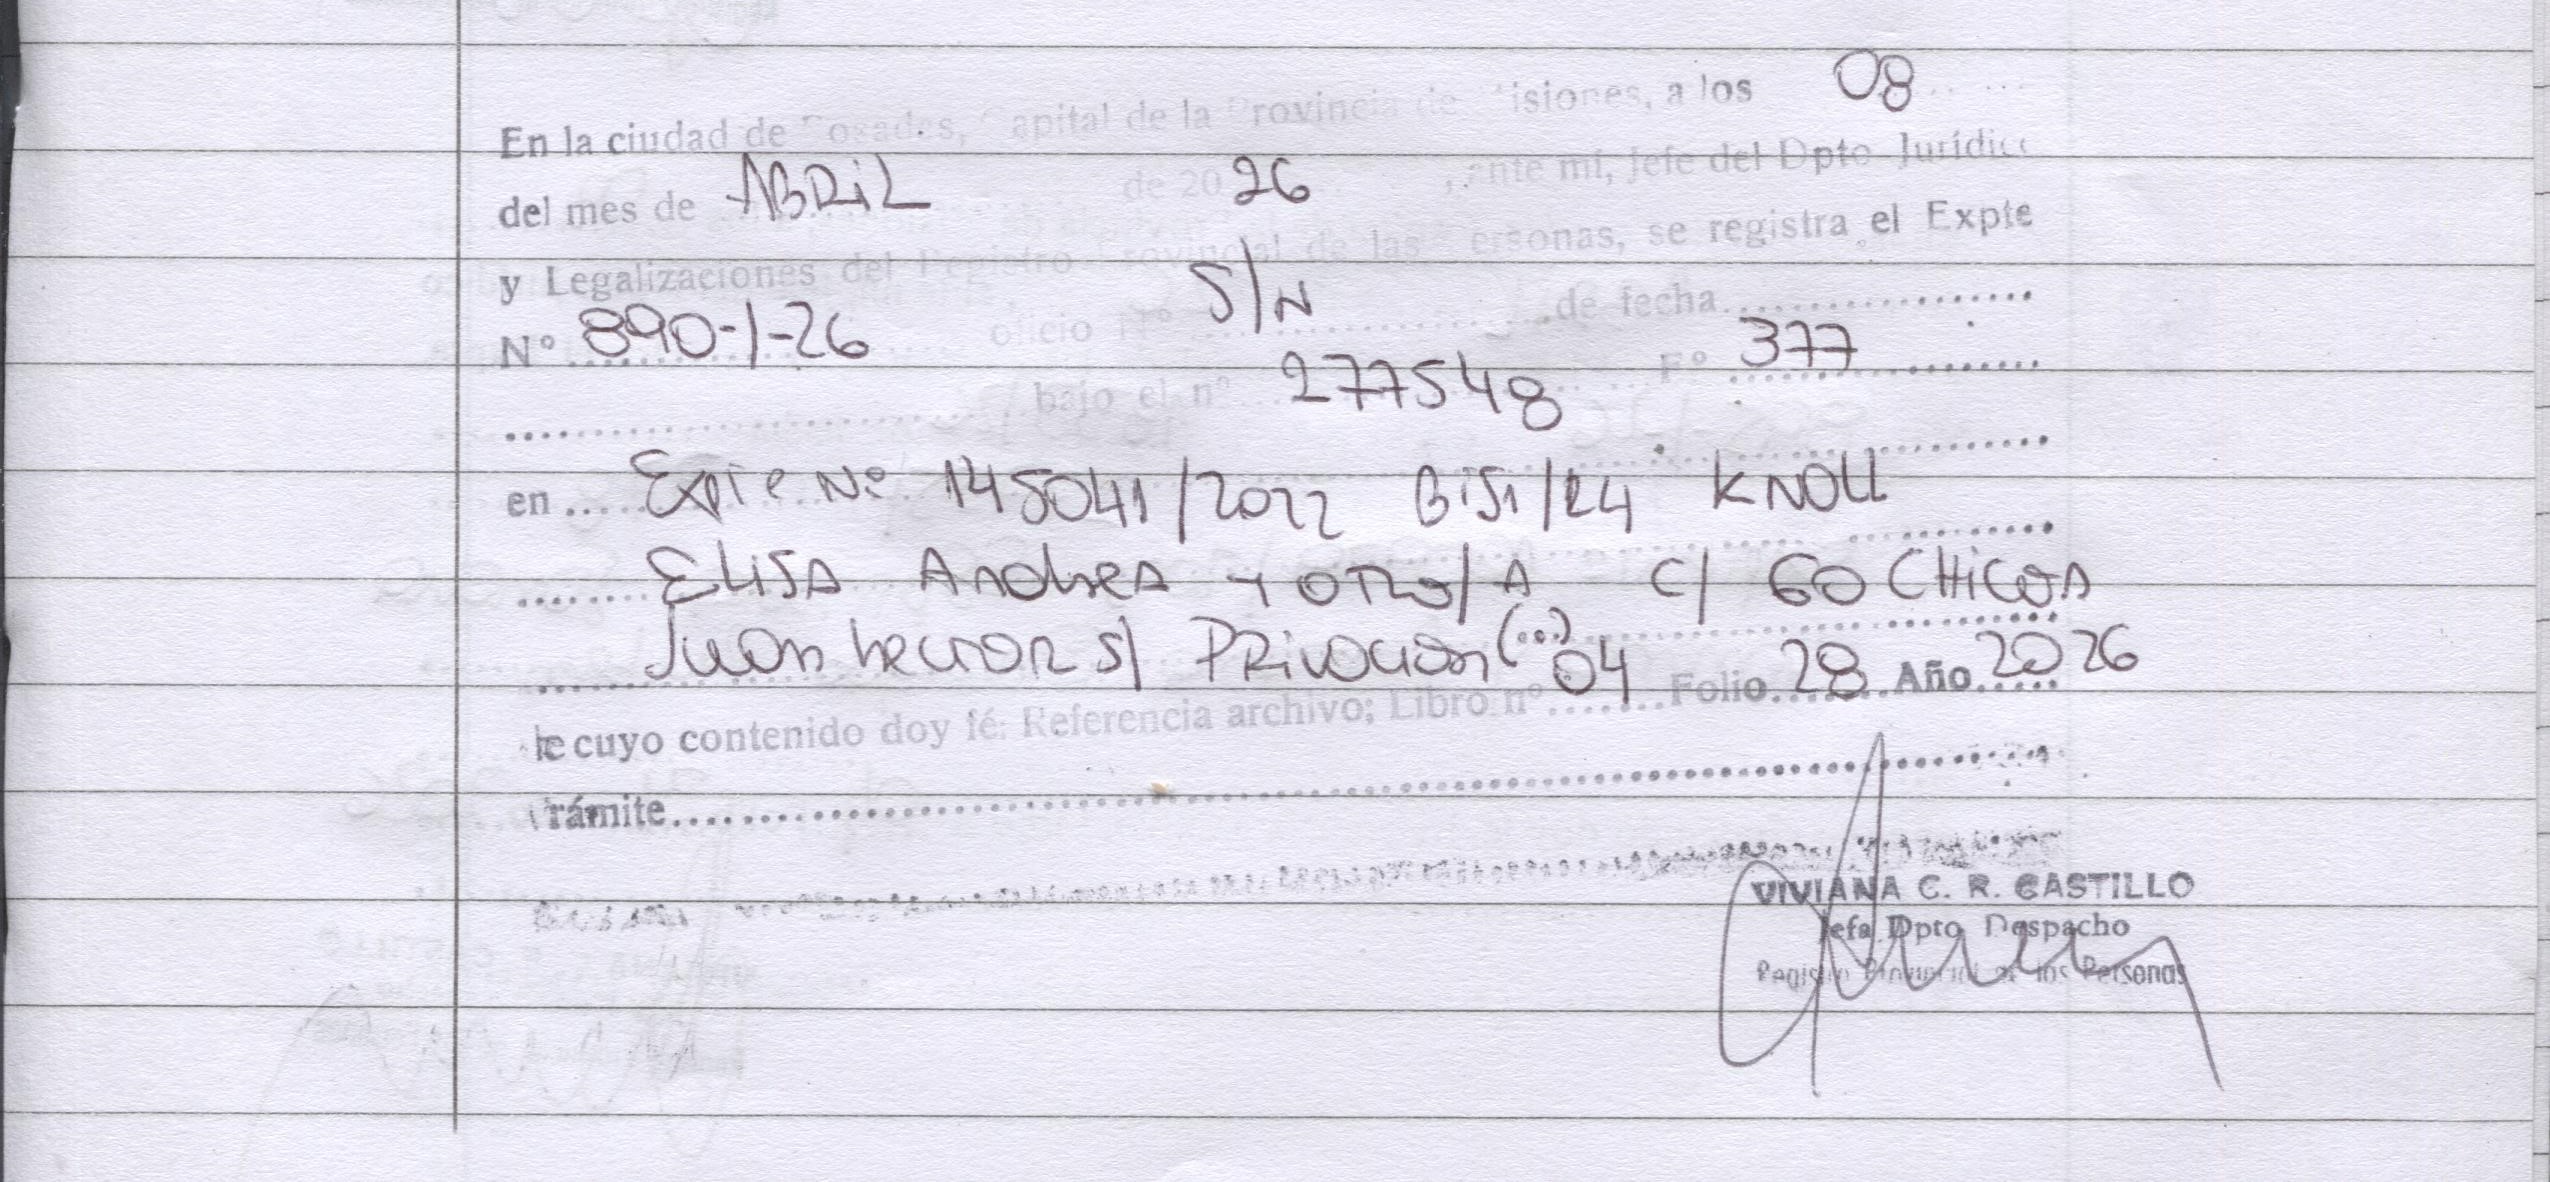 En la ciudad de Posadas, Capital de la Provincia de Misiones, a los 08
del mes de ABRIL de 20 26, ante mí, Jefe del Dpto Jurídico
y Legalizaciones del Registro Provincial de las Personas, se registra el Expte
N° 890-1-26 oficio N° S/N de fecha
bajo el n° 277548 F° 377
en Expte Nº 145041/2022 BIS1/24 KNOLL
ELISA Andrea y OTRO/A C/
Juan Hector S/ Privacion (...)
de cuyo contenido doy fé: Referencia archivo; Libro n° 04 Folio 28 Año 2026
Trámite
VIVIANA C. R. CASTILLO
Jefa Dpto Despacho
Registro Provincial de las Personas